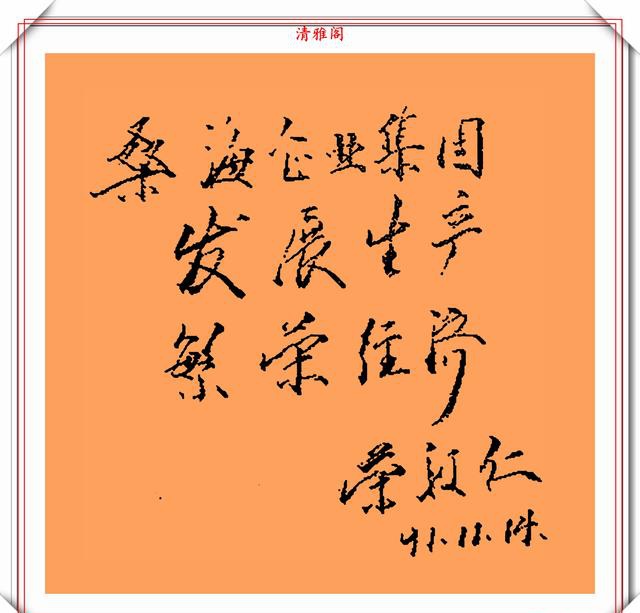 清雅阁
桑海企业集团
发展生产
繁荣经济
荣毅仁
91.11.14.